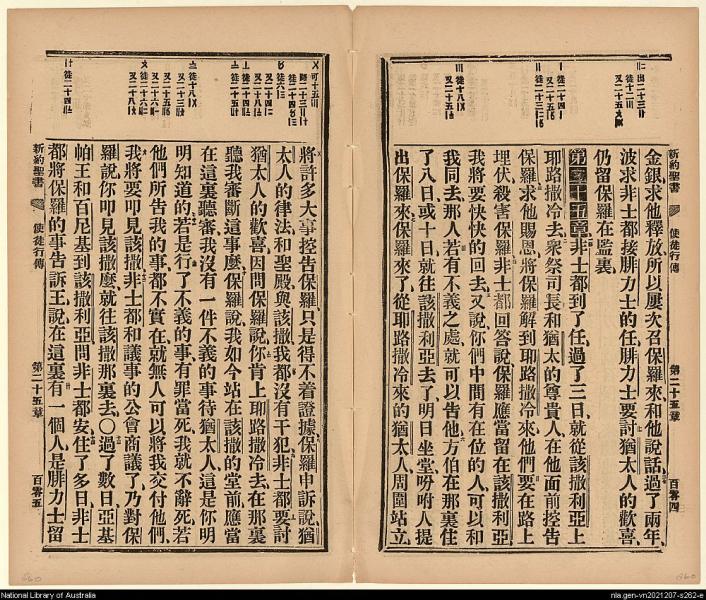 新約聖書
使徒行傳
第二十五章
百零四
金銀、求他釋放、所以屢次召保羅來、和他說話、過了兩年、
波求非士都接腓力士的任、腓力士要討猶太人的歡喜、
仍留保羅在監裏、
第二十五章非士都到了任、過了三日、就從該撒利亞上
耶路撒冷去、衆祭司長和猶太的尊貴人、在他面前控告
保羅、求他賜恩、將保羅解到耶路撒冷來、他們要在路上
埋伏殺害保羅、非士都回答說、保羅應當留在該撒利亞、
我將要快快的回去、又說、你們中間有在位的人、可以和
我同去、那人若有不義之處、就可以告他、方伯在那裏住
了八日或十日、就往該撒利亞去了、明日坐堂、吩咐人提
出保羅來、保羅來了、從耶路撒冷來的猶太人、周圍站立、
將許多大事控告保羅、只是得不着證據、保羅申訴說、猶
太人的律法、和聖殿、與該撒、我都沒有干犯、非士都要討
猶太人的歡喜、因問保羅說、你肯上耶路撒冷去、在那裏
聽我審斷這事麼、保羅說、我如今站在該撒的堂前、應當
在這裏聽審、我沒有一件不義的事待猶太人、這是你明
明知道的、若是行了不義的事、有罪當死、我就不辭死、若
他們所告我的事都不實在、就無人可以將我交付他們、
我將要叩見該撒、非士都和議事的公會商議了、乃對保
羅說、你叩見該撒麼、就往該撒那裏去、〇過了數日、亞基
帕王和百尼基到該撒利亞、問非士都安、住了多日、非士
都將保羅的事告訴王、說、在這裏有一個人、是腓力士留
新約聖書
使徒行傳
第二十五章
百零五
National Library of Australia
nla.gen-vn2021207-s262-e